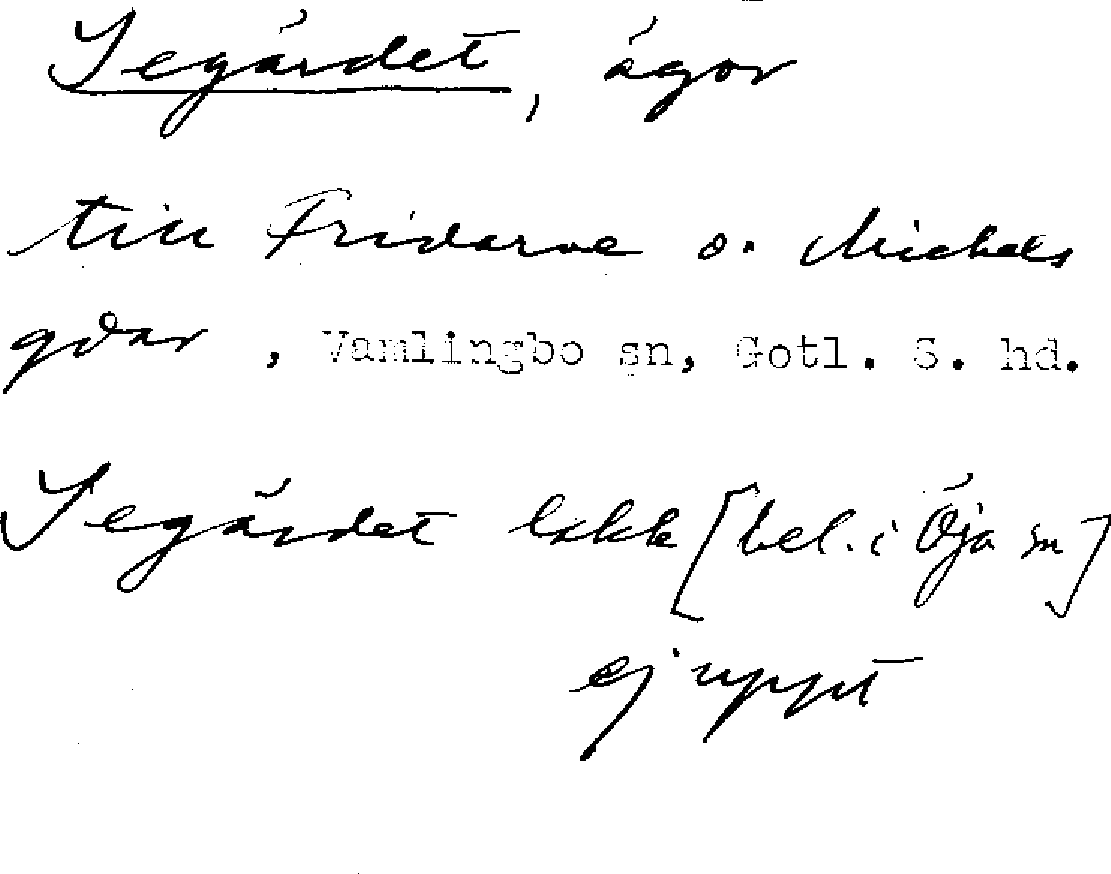 Segärdet, ägor
till Fridarve o. Michels
gdar, Vamlingbo sn, Gotl. S. hd.
Segärdet Ekk [bel. i Öja sn]
ej uppt